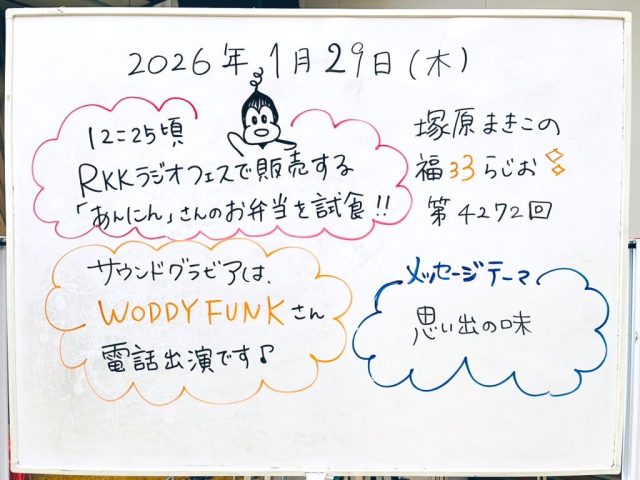 2026年1月29日(木)
12=25頃
RKKラジオフェスで販売する
「あんにん」さんのお弁当を試食!!
塚原まきこの
福33らじお
第4272回
サウンドグラビアは、
WODDY FUNKさん
電話出演です♪
メッセージテーマ
思い出の味